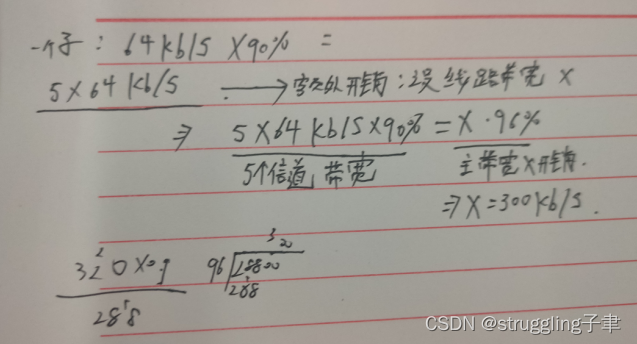 一个子：64kb/s ×90% =
5×64kb/s → 额外开销：设线路带宽 x
⇒ 5×64kb/s×90% = x·96%
5个信道 带宽 主带宽×开销.
⇒ x=300kb/s.
320×0.9
288
3 00
96 28800
288
CSDN @struggling子聿